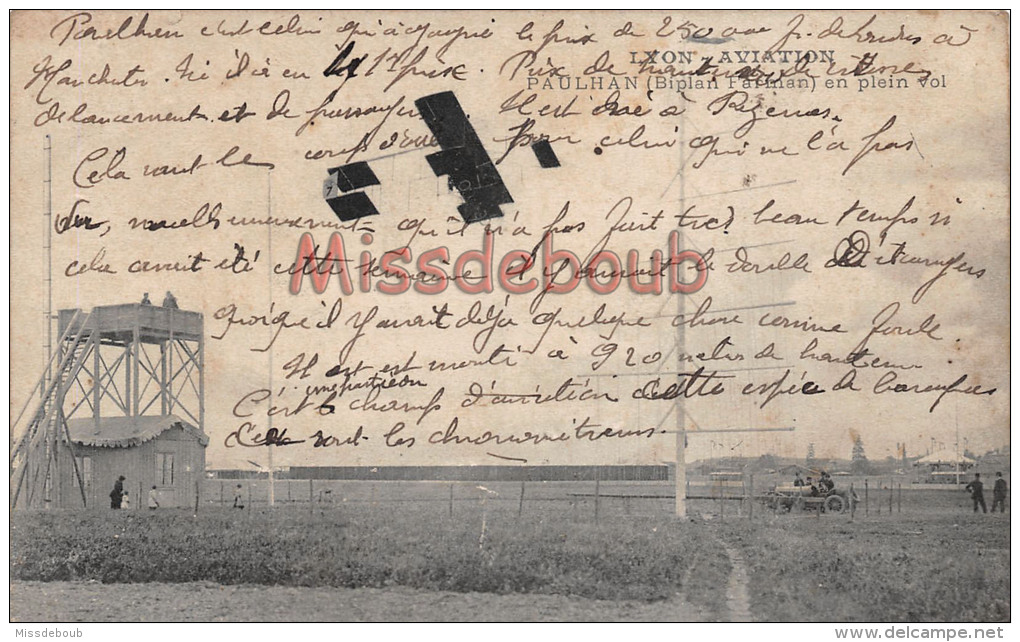 Paulhan c'est celui qui a gagné le prix de 250 000 f. de Londres à
LYON - AVIATION
Manchester. Ici il a eu le 1er prix. Prix de hauteur de vitesse
PAULHAN (Biplan Farman) en plein vol
de lancement et de passagers. Il est né à Pézenas.
Cela vaut le coup d'œil pour celui qui ne l'a pas
vu, malheureusement qu'il n'a pas fait très beau temps si
cela avait été cette semaine il y aurait le double d'étrangers
quoiqu'il y avait déjà quelque chose comme foule.
Il est est monté à 920 mètres de hauteur.
C'est le champ d'aviation cette espèce de baraques
improvisation
c'est sont les chronométreurs.
7
Missdeboub
Missdeboub
www.delcampe.net